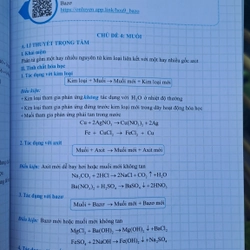 Bazo
https://onlazom.app.link/Sead_bazo
CHỦ ĐỀ 4: MUỐI
A. LÍ THUYẾT TRỌNG TÂM
I. Khái niệm
Phân tử gồm một hay nhiều nguyên tử kim loại liên kết với một hay nhiều gốc axit
II. Tính chất hóa học
1. Tác dụng với kim loại
Kim loại + Muối → Muối mới + Kim loại mới
Điều kiện:
+ Kim loại tham gia phản ứng không tác dụng với H₂O ở nhiệt độ thường
+ Kim loại tham gia phản ứng đứng trước kim loại mới trong dãy hoạt động hóa học
+ Muối tham gia phản ứng phải tan trong nước
Cu + 2AgNO₃ → Cu(NO₃)₂ + 2Ag
Fe + CuCl₂ → FeCl₂ + Cu
2. Tác dụng với axit
Muối + Axit → Muối mới + Axit mới
Điều kiện: Axit mới dễ bay hơi hoặc muối mới không tan
Na₂CO₃ + 2HCl → 2NaCl + CO₂↑ + H₂O
Ba(NO₃)₂ + H₂SO₄ → BaSO₄↓ + 2HNO₃
3. Tác dụng với bazơ
Muối + Bazơ → Muối mới + Bazơ mới
Điều kiện: Bazơ mới hoặc muối mới không tan
MgCl₂ + Ba(OH)₂ → Mg(OH)₂↓ + BaCl₂
FeSO₄ + 2NaOH → Fe(OH)₂↓ + Na₂SO₄